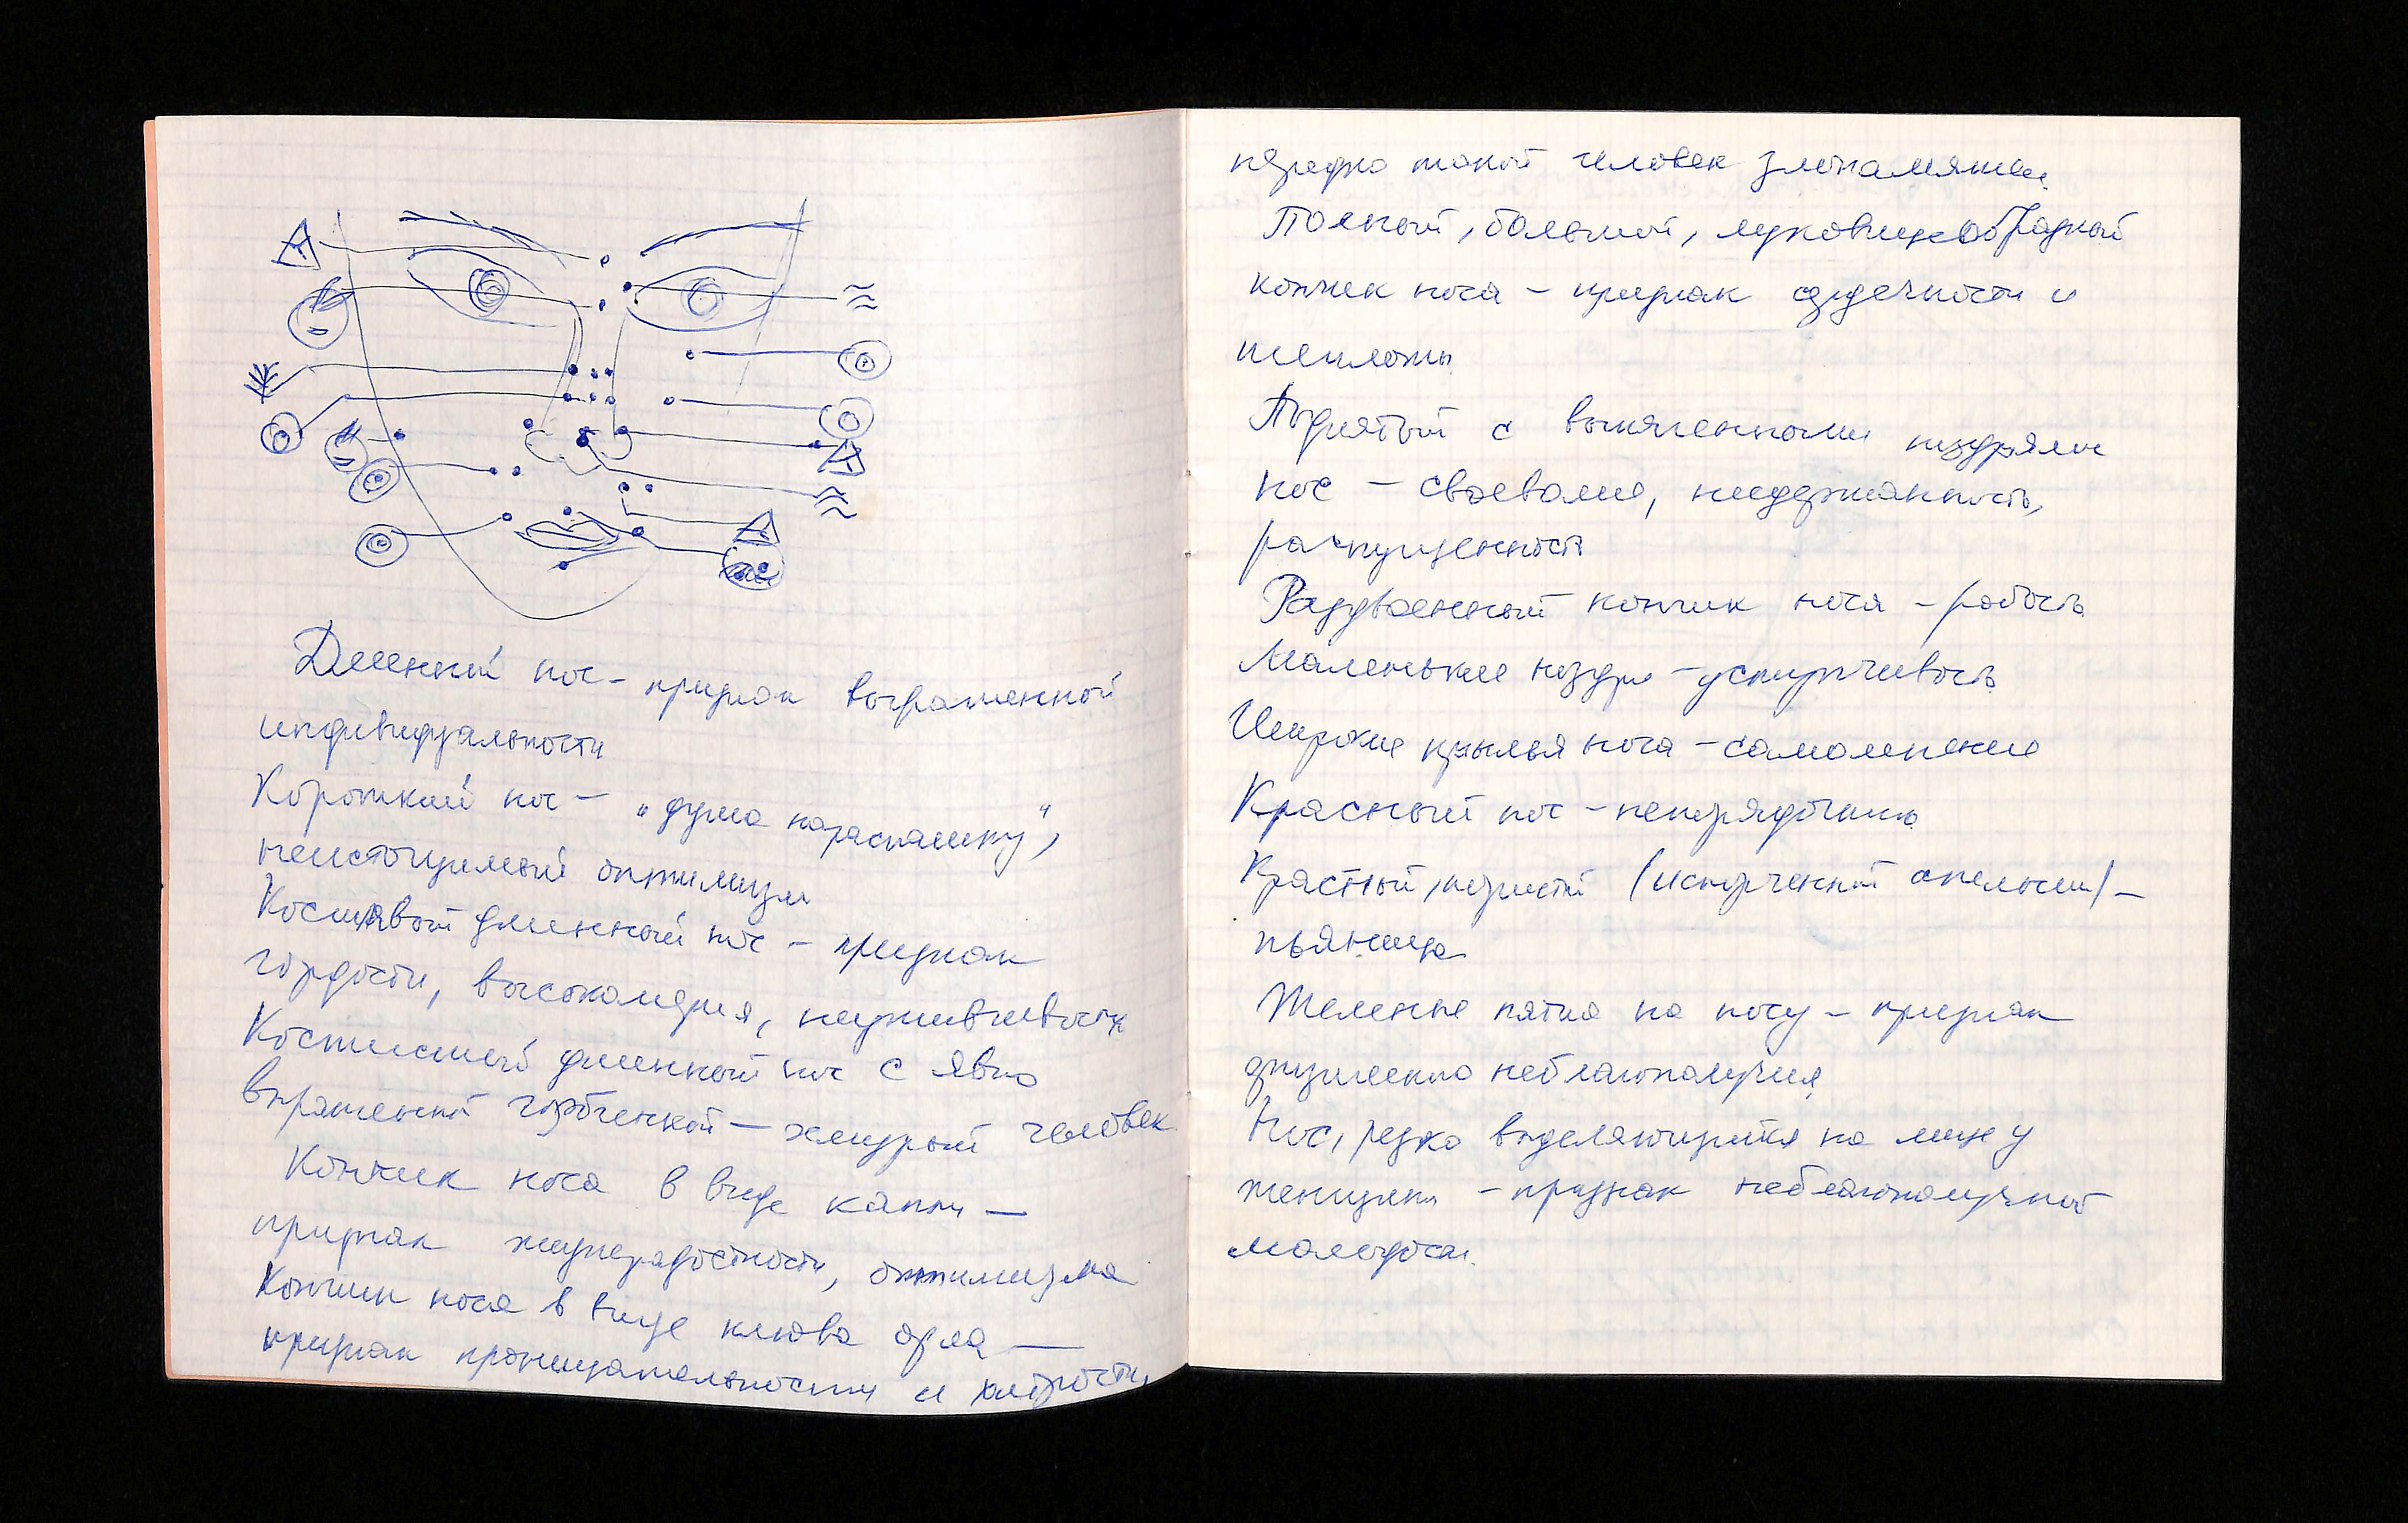 Длинный нос - признак выраженной
индивидуальности
Короткий нос - "душа нараспашку",
неистощимый оптимизм
Костлявый длинный нос - признак
гордости, высокомерия, неуживчивости
Костистый длинный нос с явно
выраженной горбинкой - хмурый человек
Кончик носа в виде капли -
признак жизнерадостности, оптимизма
Кончик носа в виде клюва орла -
признак проницательности и хитрости,
нередко такой человек злопамятен.
Полный, большой, луковицеобразный
кончик носа - признак сердечности и
теплоты
Поднятый с вытянутыми ноздрями
нос - своеволие, несдержанность,
распущенность
Раздвоенный кончик носа - робость
Маленькие ноздри - уступчивость
Широкие крылья носа - самомнение
Красный нос - непорядочный
Красный, пористый (испорченный апельсин) -
пьяница
Желтые пятна на носу - признак
душевного неблагополучия
Нос, резко выделяющийся на лице у
женщины - признак неблагополучной
молодости.